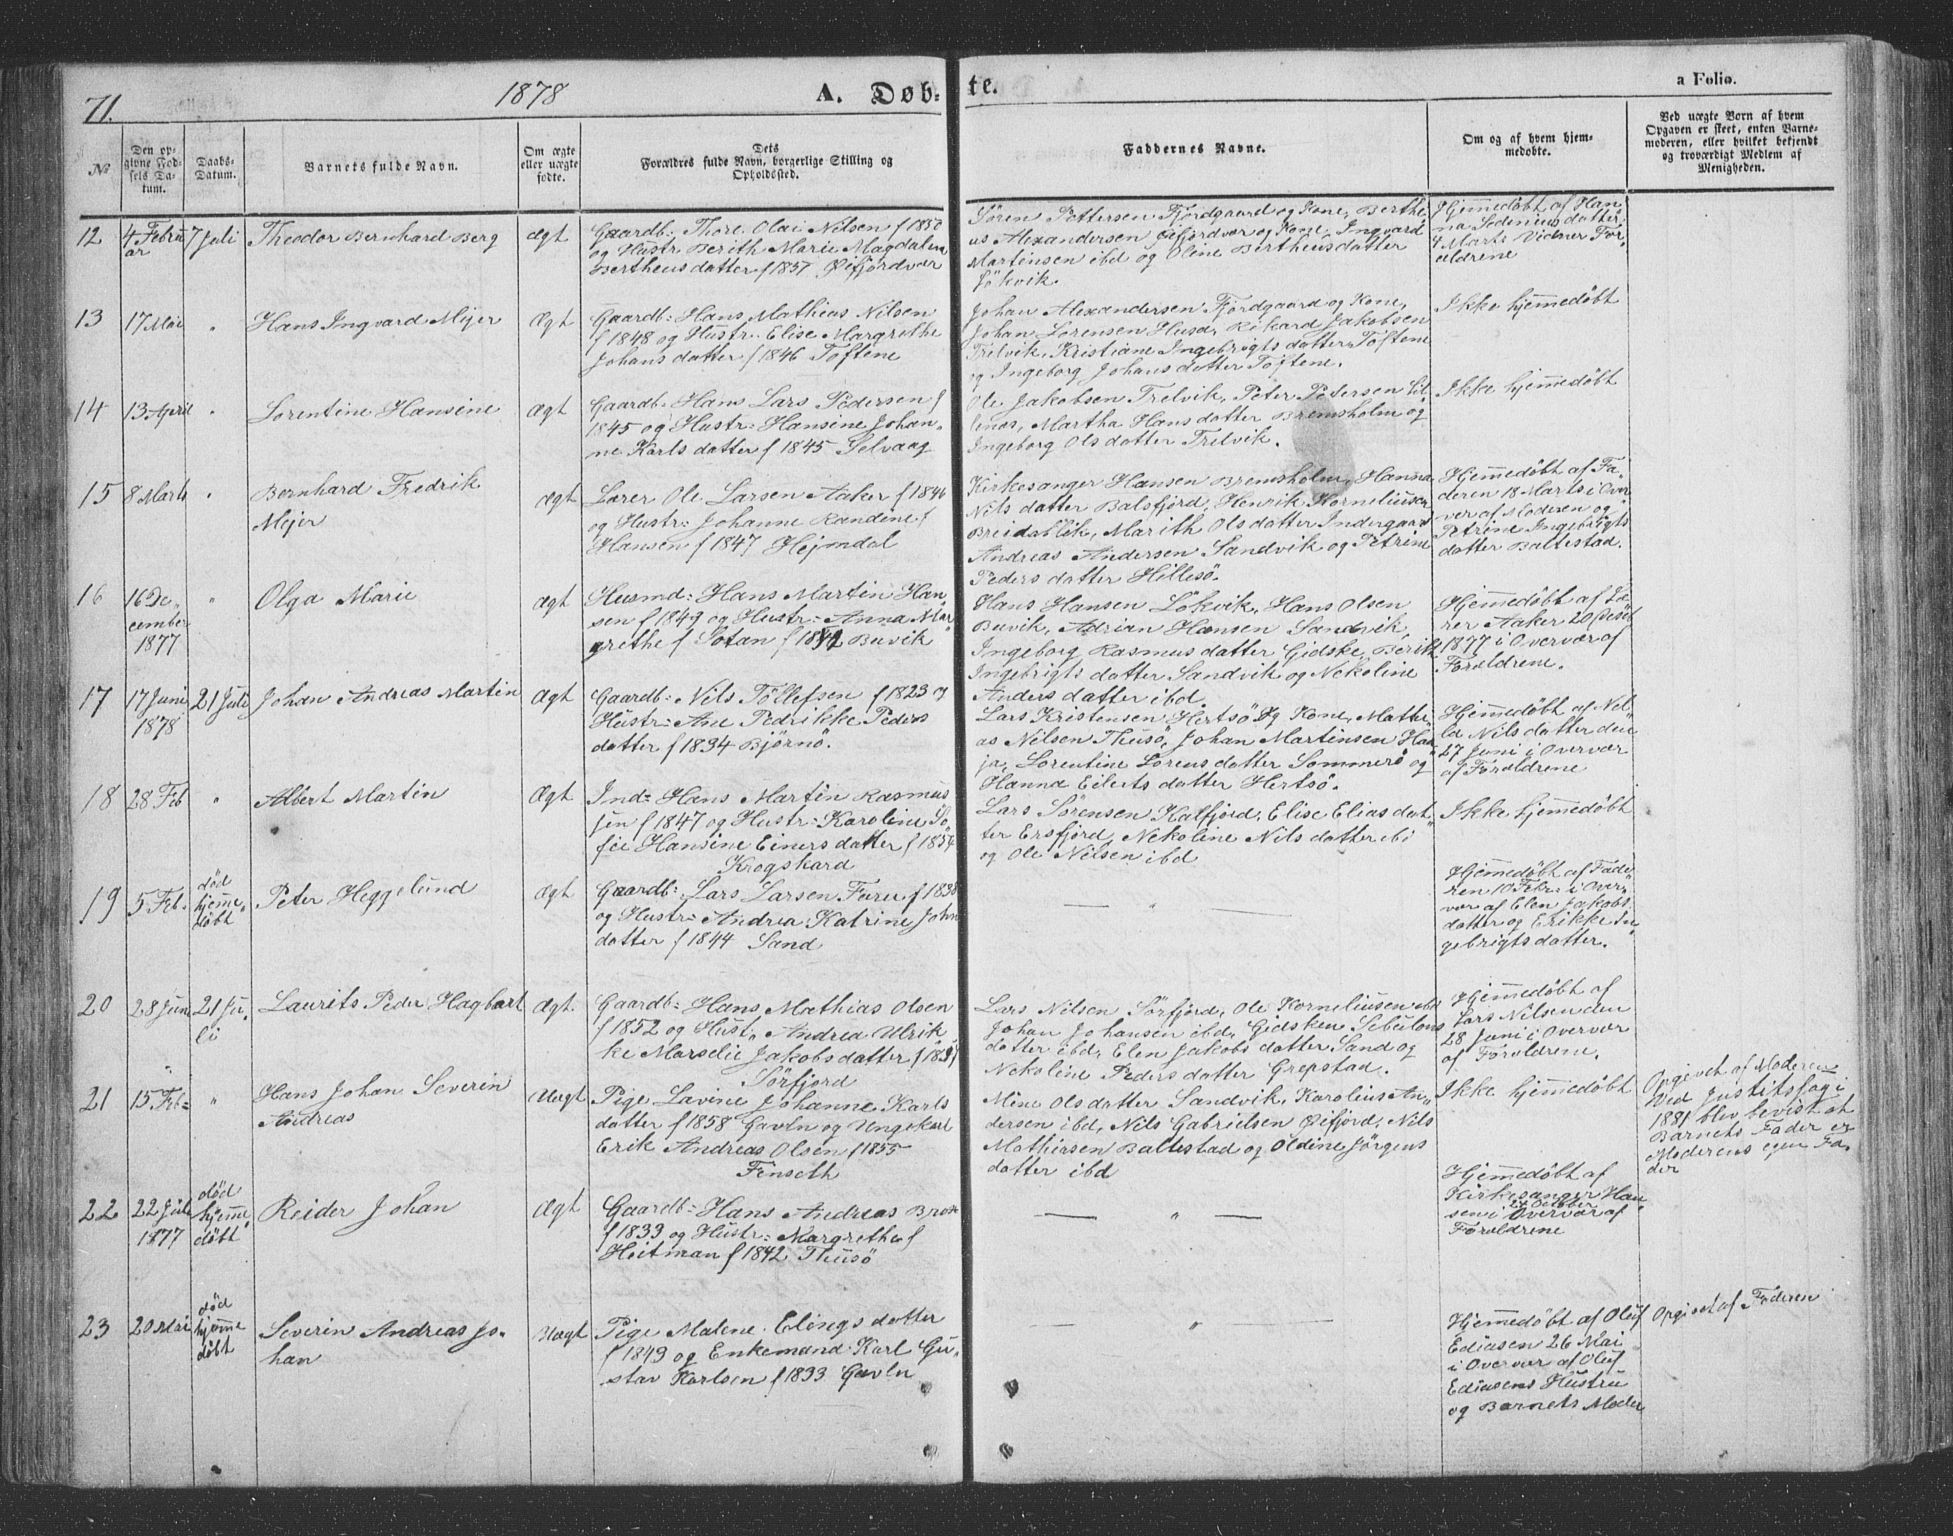 71.
1878
A. Døb-
te.
a Folio.
No
Den op-
givne Fød-
sels Da-
tum.
Daabs-
Datum.
Barnets fulde Navn.
Om ægte
eller uægte
fødte.
Dets
Forældres fulde Navn, borgerlige Stilling og
Opholdssted.
Faddernes Navne.
Om og af hvem hjem-
medøbte.
Ved uægte Børn af hvem
Opgaven er skeet, enten Barne-
moderen, eller hvilket bekjendt
og troværdigt Medlem af
Menigheden.
12
4 Febru
ar
7 Juli
Theodor Bernhard Berg
Ægt
Gaardb: Thore Olai Nilsen f 1850
og Hustr Berith Marie Magdalene
Bertheusdatter f 1857 Øifjordvær
Søren Pettersen Fjordgaard og Kone, Berthe
us Alexandersen Øifjordvær og Kone, Ingvard
Martinsen ibd og Oline Bertheusdatter
Lökvik.
Hjemmedøbt af Han
na Seveniusdatter
4 Marts Vidner For,
ældrene
13
17 Mai
"
Hans Ingvard Mejer
Ægt
Gaardb: Hans Mathias Nilsen
f 1848 og Hustr: Elise Margrethe
Johansdatter f 1846 Toftene
Johan Alexandersen Fjordgaard og Kone,
Johan Sørensen Husør, Rikard Jakobsen
Trelvik, Kristiane Ingebrigtsdatter Toftene
og Ingeborg Johansdatter Toftene.
Ikke hjemmedøbt
14
13 April
"
Sorentine Hansine
Ægt
Gaardb: Hans Lars Pedersen f
1845 og Hustr: Hansine Johan,
ne Karlsdatter f 1845 Selvaag
Ole Jakobsen Trelvik, Peter Pedersen Lil
linas, Martha Hansdatter Bremsholm og
Ingeborg Olsdatter Trelvik.
Ikke hjemmedøbt
15
8 Marts
"
Bernhard Fredrik
Mejer
Ægt
Lærer Ole Larsen Aaker f 1846
og Hustr: Johanne Randine f
Hansen f 1847 Hejmdal
Kirkesanger Hansen Bremsholm, Hanna
Nilsdatter Balsfjord, Henrik Korneliussen
Breidablik, Marith Olsdatter Indergaard
Andreas Andersen Sandvik og Petrine
Pedersdatter Hillesö.
Hjemmedøbt af Fa,
deren 18 Marts i Over
vær af Moderen og
Petrine Ingebrigts
datter Baltestad.
16
16 De,
cember
1877
"
Olga Marie
Ægt
Husmd: Hans Martin Han
sen f 1849 og Hustr: Anna Mar
grethe f Sotan f 1842 Buvik
Hans Hansen Lökvik, Hans Olsen
Buvik, Adrian Hansen Sandvik,
Ingeborg Rasmusdatter Gidske, Berith
Ingebrigtsdatter Sandvik og Nekoline
Andersdatter ibd.
Hjemmedøbt af Læ,
rer Aaker 20 Desbr
1877 i Overvær af
Forældrene.
17
17 Juni
1878
21 Juli
Johan Andreas Martin
Ægt
Gaardb: Nils Töllefsen f 1823 og
Hustr: Ane Pedrikke Peders
datter f 1834 Björnö.
Lars Kristensen Hertsö og Kone, Matti
as Nilsen Thusö, Johan Martinsen Haa
ja, Lorentine Lorensdatter Sommerö og
Hanna Eilertsdatter Hertsö.
Hjemmedøbt af Nel
la Nilsdatter den
27 Juni i Overvær
af Forældrene
18
28 Feb
"
Albert Martin
Ægt
Ind: Hans Martin Rasmus
sen f 1847 og Hustr: Karoline So
fie Hansine Einersdatter f 1854
Krogskard
Lars Sørensen Kalfjord, Elise Eliasdat,
ter Ersfjord, Nekoline Nilsdatter ibi
og Ole Nilsen ibd
Ikke hjemmedøbt
19
5 Feb.
død
hjemme,
døbt
Peter Heggelund
Ægt
Gaardb: Lars Larsen Faru f 1838
og Hustr: Andrea Katrine John
datter f 1844 Sand
"
Hjemmedøbt af Fade
ren 10 Febr: i Over
vær af Elen Jakobs
datter og Erikke In,
gebrigtsdatter.
20
28 Juni
21 Ju,
li
Laurits Peder Hagbart
Ægt.
Gaardb: Hans Mathias Olsen
f 1852 og Hust, Andrea Ulrik,
ke Marselie Jakobsdatter f 1851
Sörfjord
Lars Nilsen Sörfjord, Ole Korneliussen ibd
Johan Johansen ibd, Gidsken Sebulons
datter ibd, Elen Jakobsdatter Sand og
Nekoline Pedersdatter Grepstad.
Hjemmedøbt af
Lars Nilsen den
28 Juni i Overvær
af Forældrene.
21
15 Feb:
"
Hans Johan Severin
Andreas
Uægt
Pige Lavine Johanne Karls
datter f 1858 Gavln og Ungekarl
Erik Andreas Olsen f 1855
Finseth
Mine Olsdatter Sandvik, Karolius An,
dersen ibd, Nils Gabrielsen Øifjord, Nils
Mathisen Baltestad og Oldine Jörgens
datter ibd
Ikke hjemmedøbt
Opgivet af Moderen
Ved Justitssag i
1881 blev bevist at
Barnets Fader er
Moderens egen Fa-
der
22
22 Juli
1877
død
hjemme
døbt
Reider Johan
Ægt
Gaardb: Hans Andreas Brox
f 1833 og Hustr: Margrethe f
Heitman f 1842 Thusö
"
Hjemmedøbt af
Kirkesanger Han
27 October
sen i Overvær af
Forældrene
23
20 Mai
død
hjemme
døbt
Severin Andreas Jo-
han
Uægt
Pige Malene Elingsdatter
f 1849 og Enkemand Karl Gu,
stav Karlsen f 1833 Gavln
"
Hjemmedøbt af Oluf
Ediasen 26 Mai
i Overvær af Oluf
Ediasens Hustru
og Barnets Moder
Opgivet af Faderen